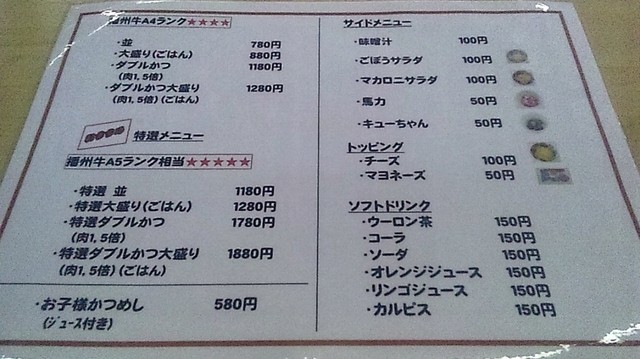 播州牛A4ランク★★★★
・並 780円
・大盛り(ごはん) 880円
・ダブルかつ 1180円
(肉1,5倍)
・ダブルかつ大盛り 1280円
(肉1,5倍)(ごはん)
特選メニュー
播州牛A5ランク相当★★★★★
・特選 並 1180円
・特選大盛り(ごはん) 1280円
・特選ダブルかつ 1780円
(肉1,5倍)
・特選ダブルかつ大盛り 1880円
(肉1,5倍)(ごはん)
・お子様かつめし 580円
(ジュース付き)
サイドメニュー
・味噌汁 100円
・ごぼうサラダ 100円
・マカロニサラダ 100円
・馬力 50円
・キューちゃん 50円
トッピング
・チーズ 100円
・マヨネーズ 50円
ソフトドリンク
・ウーロン茶 150円
・コーラ 150円
・ソーダ 150円
・オレンジジュース 150円
・リンゴジュース 150円
・カルピス 150円